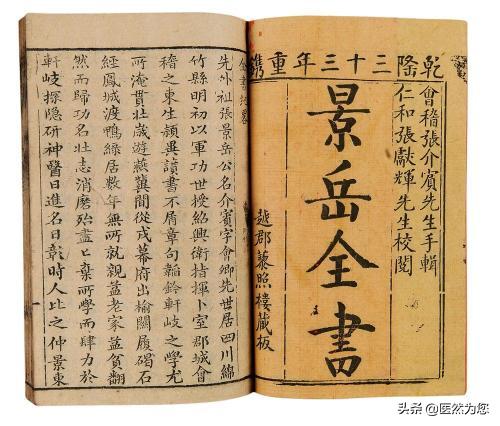 乾隆三十三年重鐫
會稽張介賓先生手輯
仁和張獻輝先生校閱
景岳全書
越郡藜照樓藏板
全書紀畧
先外祖張景岳公名介賓字會卿先世居四川綿
竹縣明初以軍功世授紹興衛指揮卜室郡城會
稽之東生穎異讀書不屑章句韜鈐軒岐之學尤
所淹貫壯歲遊燕冀間從戎幕府出榆關履碣石
經鳳城渡鴨綠居數年無所就親益老家益貧翻
然而歸功名壯志消磨殆盡匕棄所學而肆力於
軒岐探隱研神醫日進名日彰時人比之仲景東
头条 @医然为您